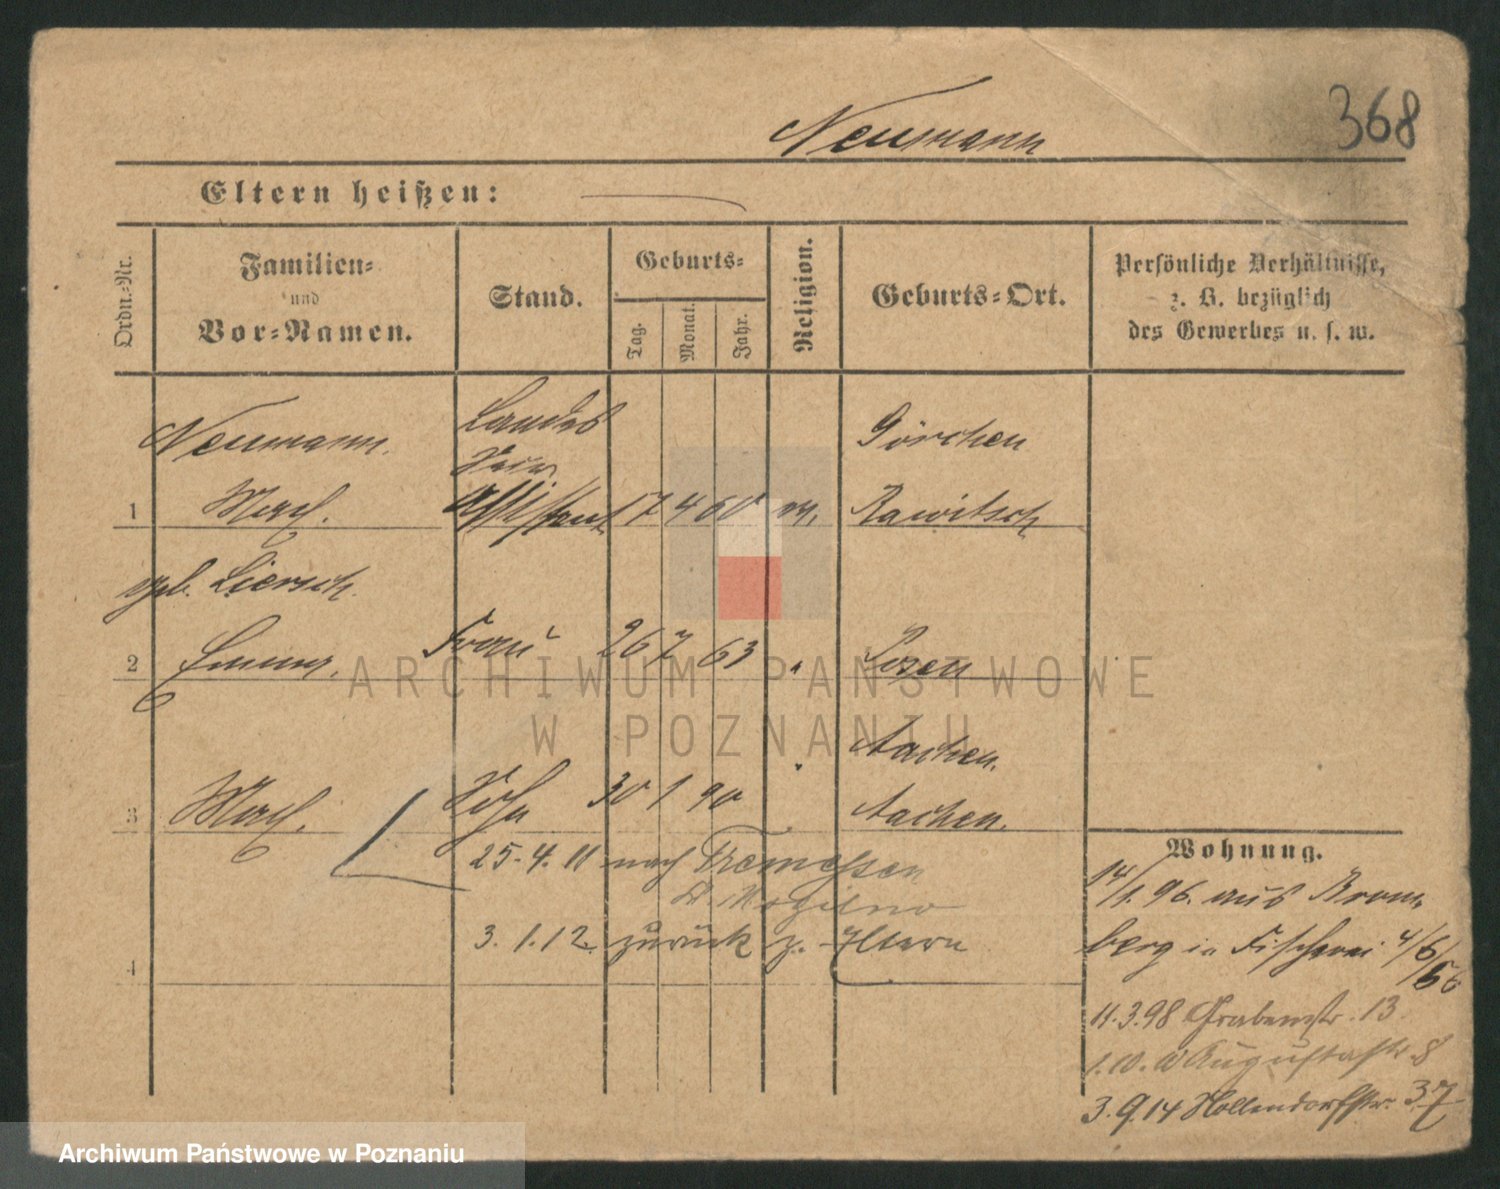 Neumann
368
Eltern heißen:
Ordn.-Nr.
Familien-
und
Vor-Namen.
Stand.
Geburts-
Tag.
Monat.
Jahr.
Religion.
Geburts-Ort.
Persönliche Verhältnisse,
z. B. bezüglich
des Gewerbes u. s. w.
Neumann.
Landes
Görchen
1
Max.
Assistent
17 4 60
Rawitsch
geb. Liersch.
2
Emma.
Frau
26 7 63
"
Posen
Aachen.
3
Max.
Sohn
30 1 90
"
Aachen.
25.4.11 nach Tremessen
Kr. Mogilno
3.1.12. zurück z. Eltern
4
Wohnung.
14/1.96. aus Brom-
berg in Fischerei 4/6
11.3.98 Grabenstr. 13.
1.10. Augustastr. 8
3.9.14 Hollendorfstr. 37
ARCHIWUM PAŃSTWOWE
W POZNANIU
Archiwum Państwowe w Poznaniu